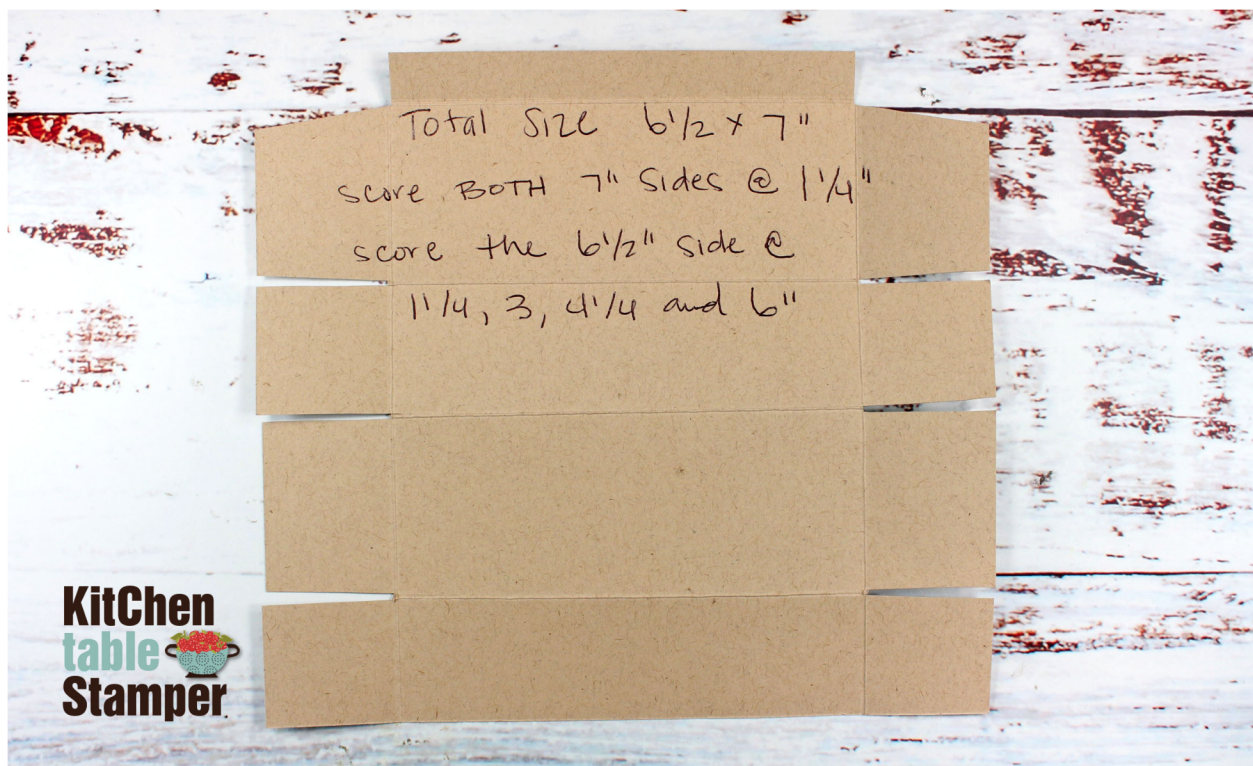 Total Size 6 1/2 x 7"
score BOTH 7" sides @ 1 1/4"
score the 6 1/2" side @
1 1/4, 3, 4 1/4 and 6"
KitChen
table
Stamper